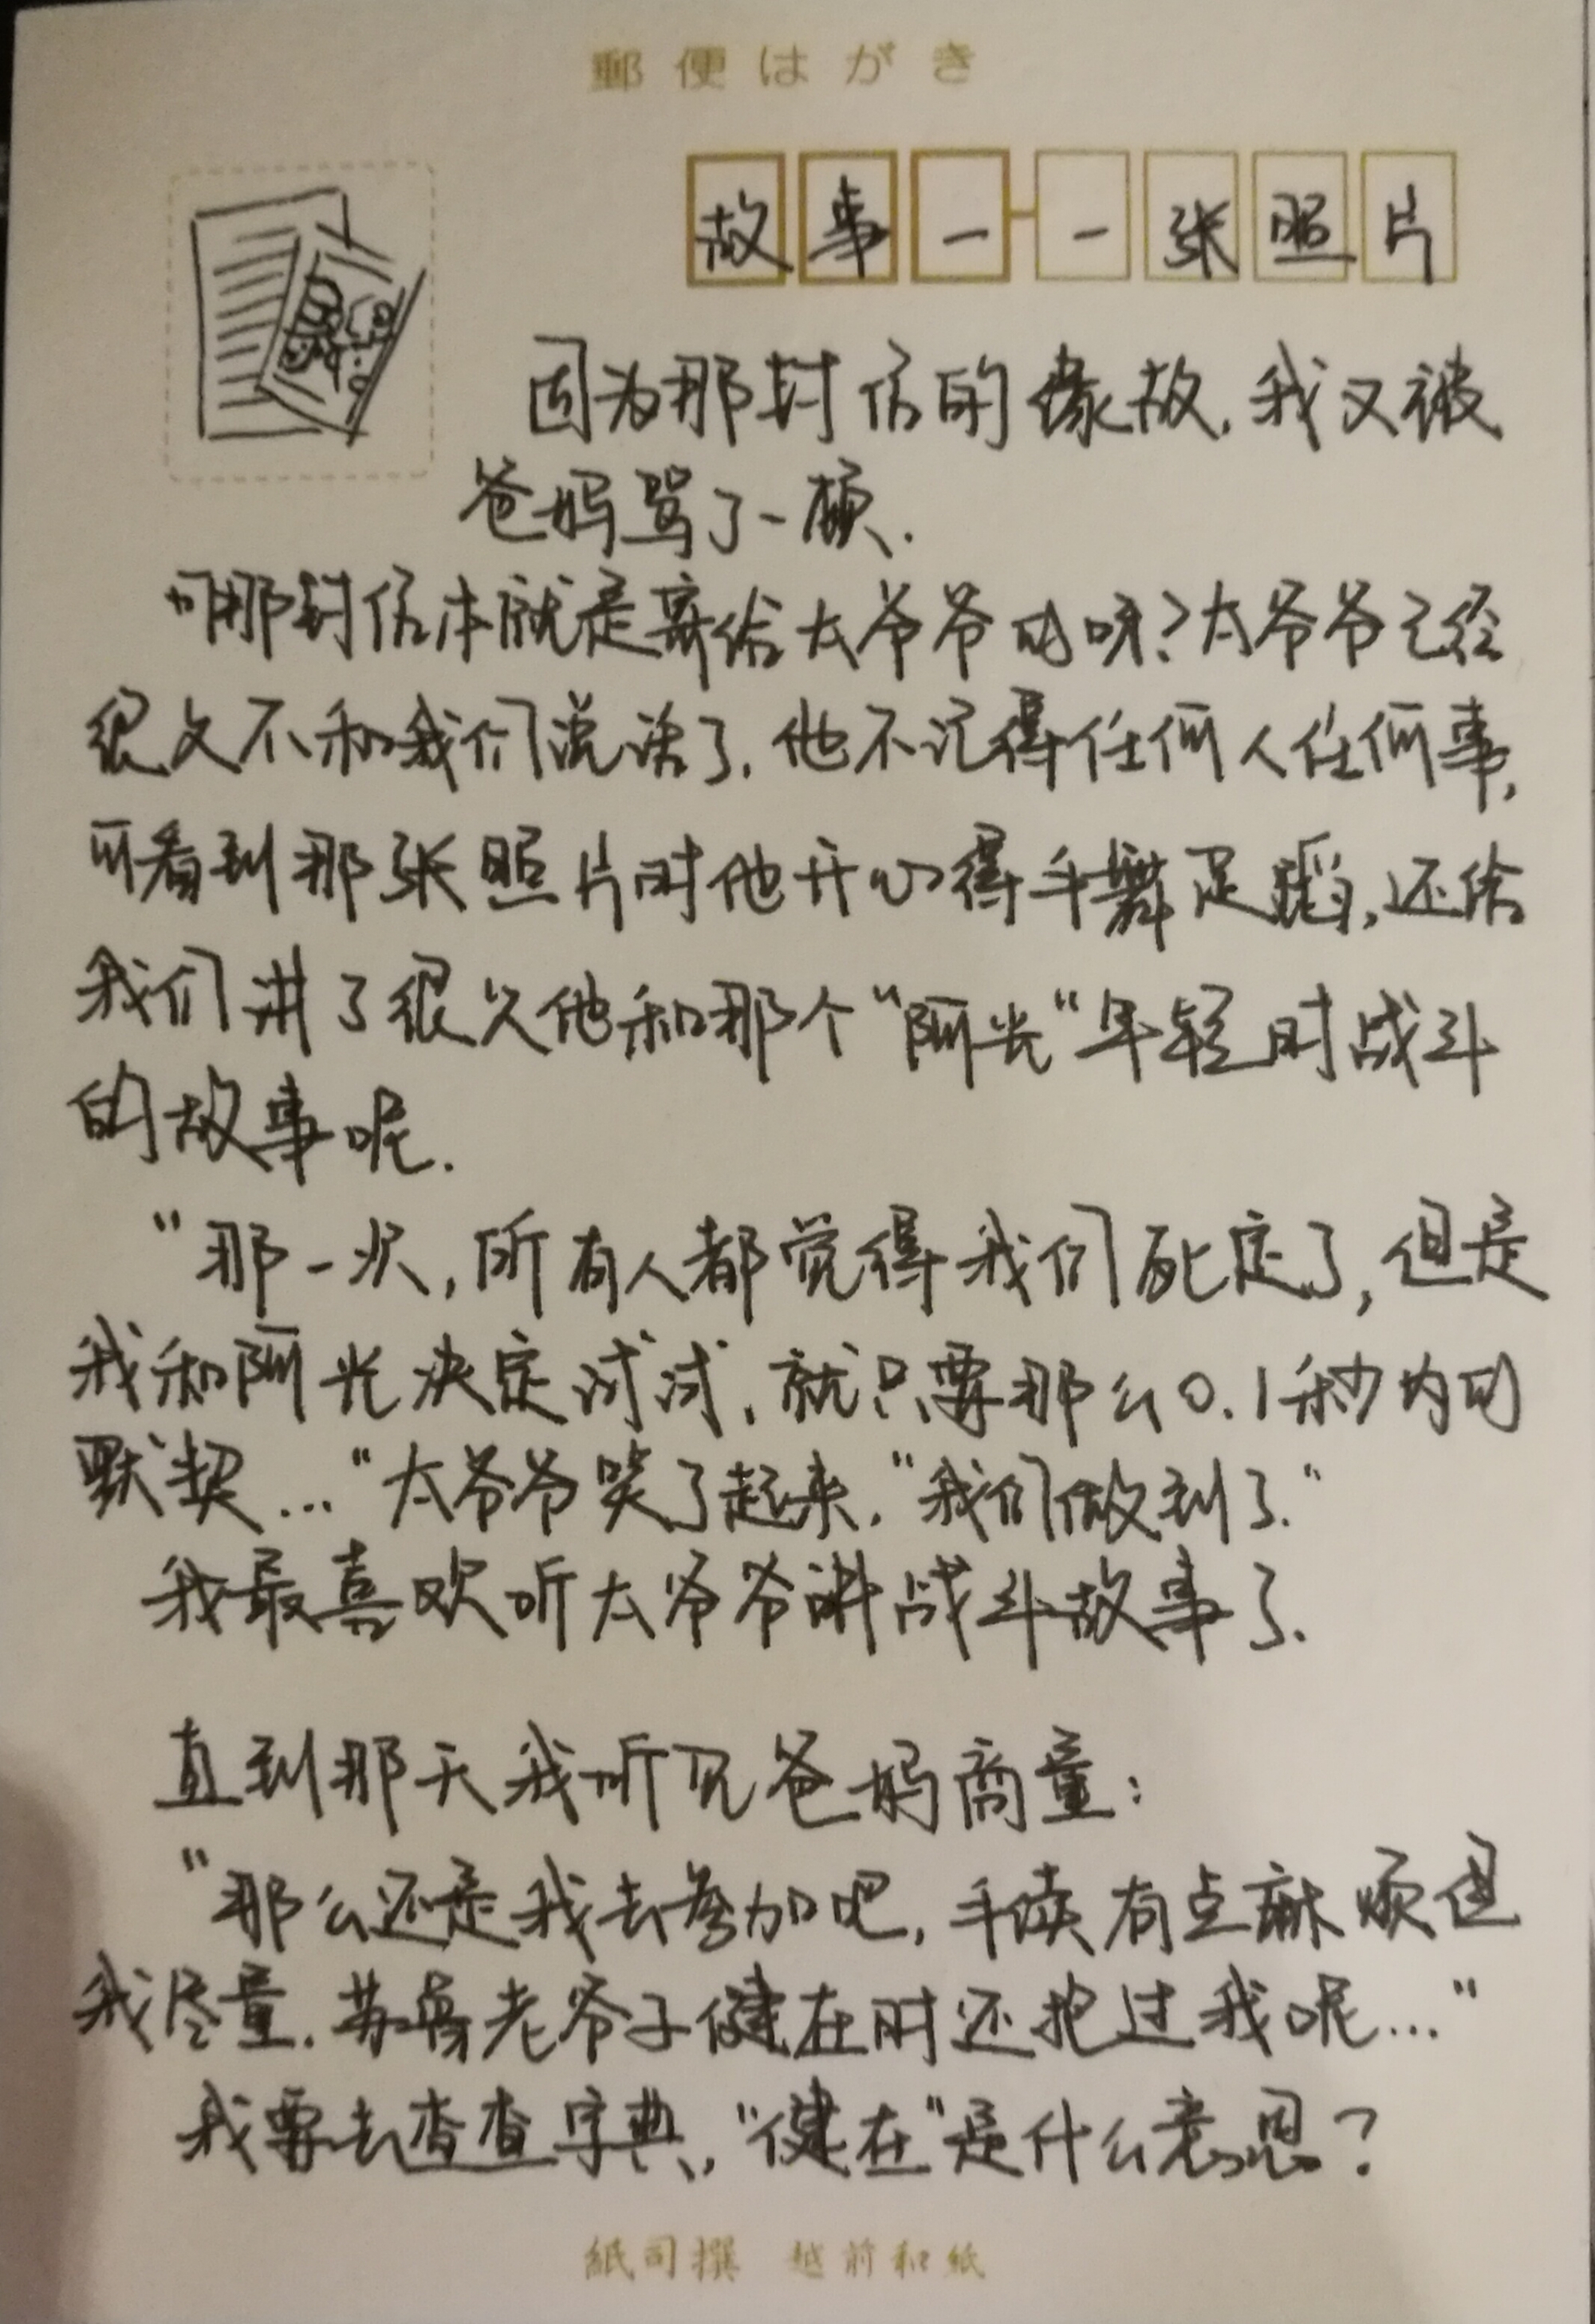 郵便はがき
故事一-一张照片
因为那封信的缘故,我又被
爸妈骂了一顿.
可那封信本就是寄给太爷爷的呀?太爷爷已经
很久不和我们说话了.他不记得任何人任何事,
可看到那张照片时他开心得手舞足蹈,还给
我们讲了很久他和那个“阿光“年轻时战斗
的故事呢.
“那一次,所有人都觉得我们死定了,但是
我和阿光决定试试,就只要那么0.1秒内的
默契..."太爷爷笑了起来."我们做到了."
我最喜欢听太爷爷讲战斗故事了.
直到那天我听见爸妈商量:
“那么还是我去参加吧,手续有点麻烦但
我尽量.老爷子健在时还抱过我呢..."
我要去查查字典,"健在"是什么意思?
紙司撰 越前和紙